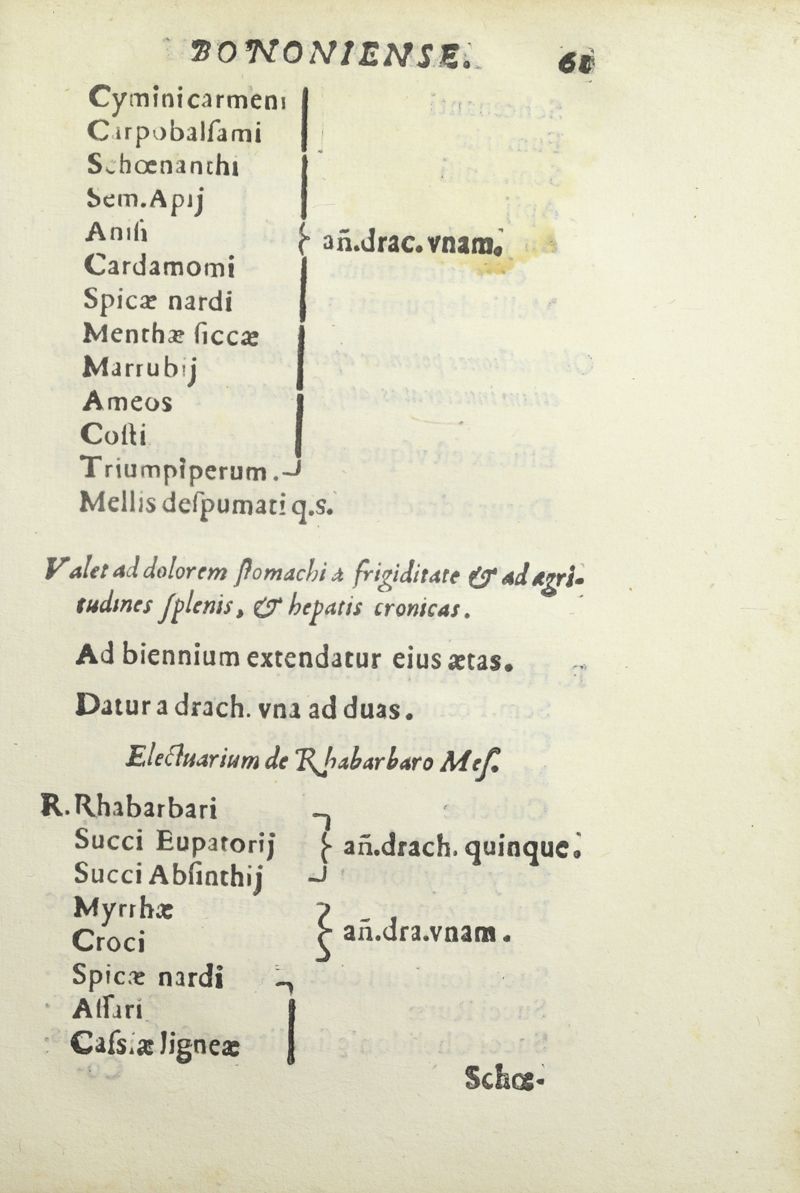 BONONIENSE. 61
Cymini carmeni
Carpobalſami
Schœnanthi
Sem. Apij
Aniſi
an̄. drac. vnam.
Cardamomi
Spicæ nardi
Menthæ ſiccæ
Marrubij
Ameos
Coſti
Trium piperum.
Mellis deſpumati q.s.
Valet ad dolorem ſtomachi a frigiditate & ad ægri-
tudines ſplenis, & hepatis cronicas.
Ad biennium extendatur eius ætas.
Datur a drach. vna ad duas.
Electuarium de Rhabarbaro Meſ.
R. Rhabarbari
Succi Eupatorij an̄. drach. quinque.
Succi Abſinthij
Myrrhæ
Croci an̄. dra. vnam.
Spicæ nardi
Aſſari
Caſsiæ ligneæ
Schœ-